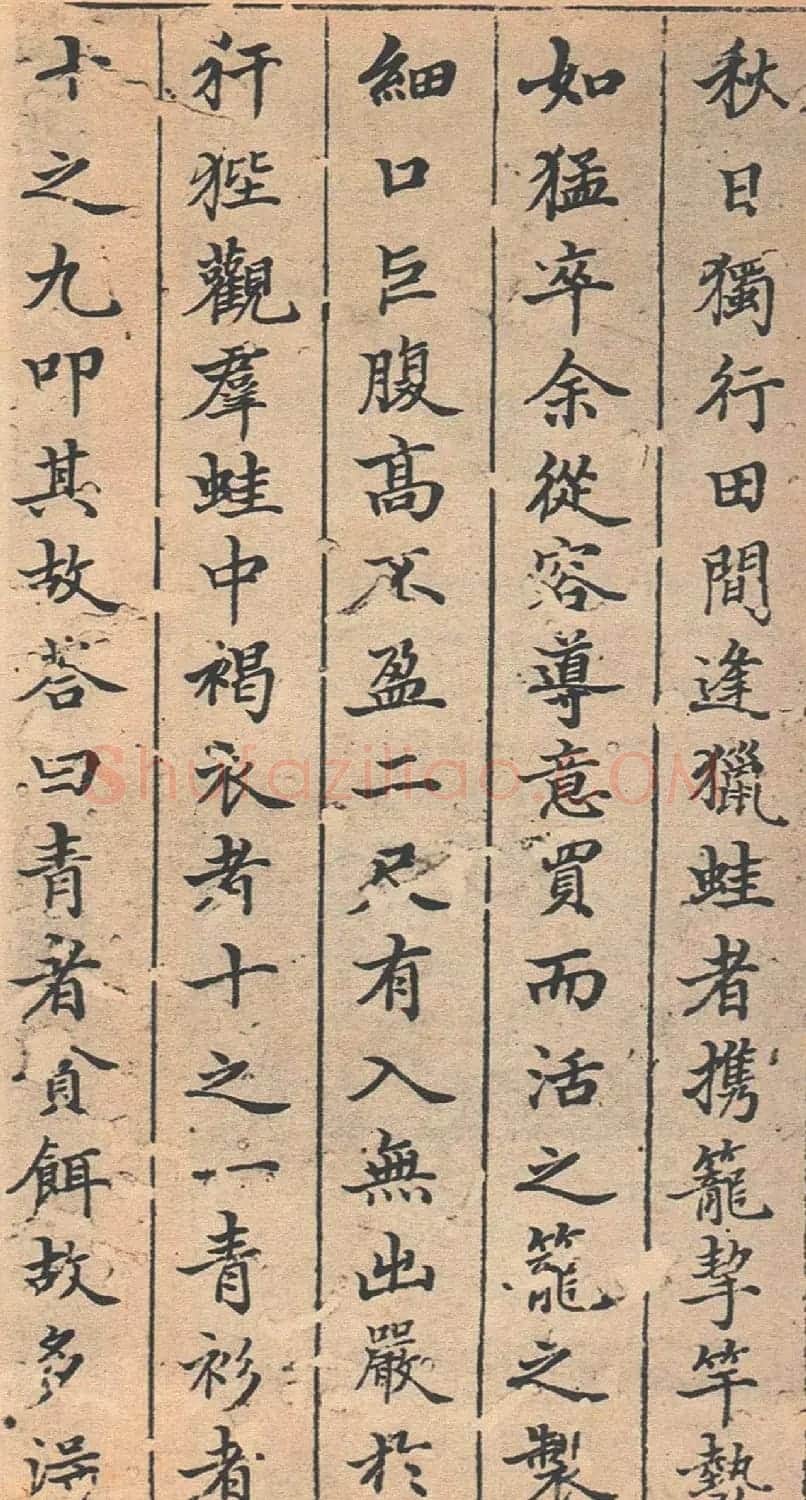 秋日獨行田間逢獵蛙者携籠挈竿勢
如猛卒余從容導意買而活之籠之製
細口巨腹高不盈二尺有入無出嚴於
犴狴觀羣蛙中褐衣者十之一青衫者
十之九叩其故荅曰青者貪餌故多
Shufaziliao.COM